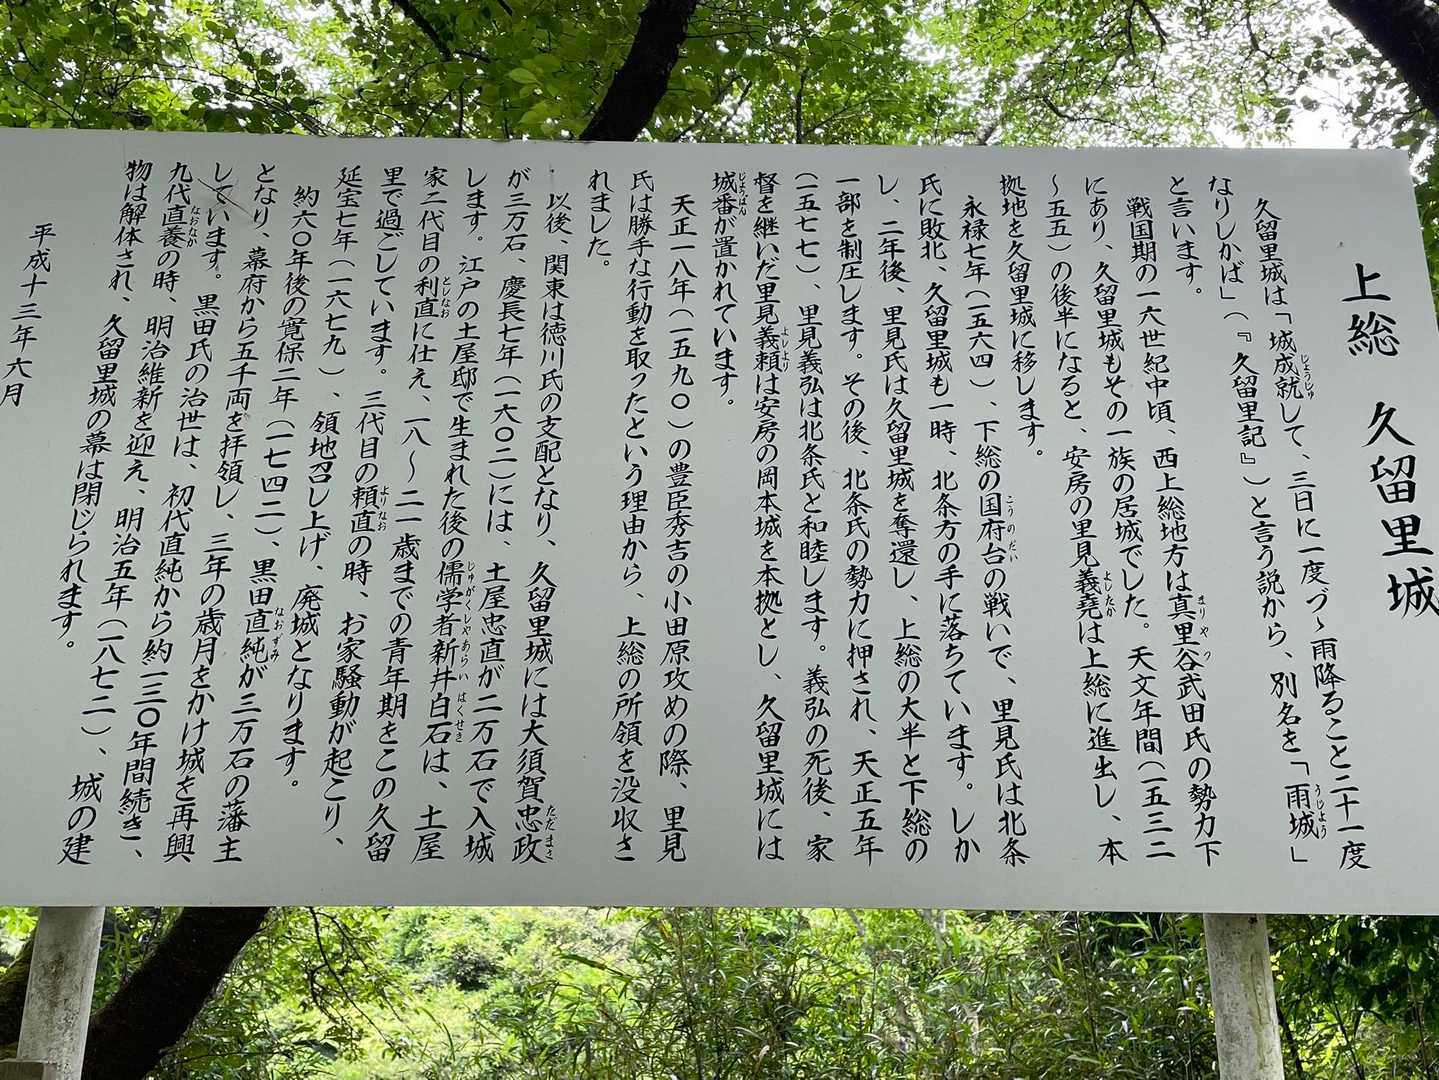 上総 久留里城
久留里城は「城成就して、三日に一度づゝ雨降ること二十一度
なりしかば」(『久留里記』)と言う説から、別名を「雨城」
と言います。
戦国期の一六世紀中頃、西上総地方は真里谷武田氏の勢力下
にあり、久留里城もその一族の居城でした。天文年間(一五三二
～五五)の後半になると、安房の里見義堯は上総に進出し、本
拠地を久留里城に移します。
永禄七年(一五六四)、下総の国府台の戦いで、里見氏は北条
氏に敗北、久留里城も一時、北条方の手に落ちています。しか
し、二年後、里見氏は久留里城を奪還し、上総の大半と下総の
一部を制圧します。その後、北条氏の勢力に押され、天正五年
(一五七七)、里見義弘は北条氏と和睦します。義弘の死後、家
督を継いだ里見義頼は安房の岡本城を本拠とし、久留里城には
城番が置かれています。
天正一八年(一五九〇)の豊臣秀吉の小田原攻めの際、里見
氏は勝手な行動を取ったという理由から、上総の所領を没収さ
れました。
以後、関東は徳川氏の支配となり、久留里城には大須賀忠政
が三万石、慶長七年(一六〇二)には、土屋忠直が二万石で入城
します。江戸の土屋邸で生まれた後の儒学者新井白石は、土屋
家二代目の利直に仕え、一八～二一歳までの青年期をこの久留
里で過ごしています。三代目の頼直の時、お家騒動が起こり、
延宝七年(一六七九)、領地召し上げ、廃城となります。
約六〇年後の寛保二年(一七四二)、黒田直純が三万石の藩主
となり、幕府から五千両を拝領し、三年の歳月をかけ城を再興
しています。黒田氏の治世は、初代直純から約一三〇年間続き、
九代直養の時、明治維新を迎え、明治五年(一八七二)、城の建
物は解体され、久留里城の幕は閉じられます。
平成十三年六月